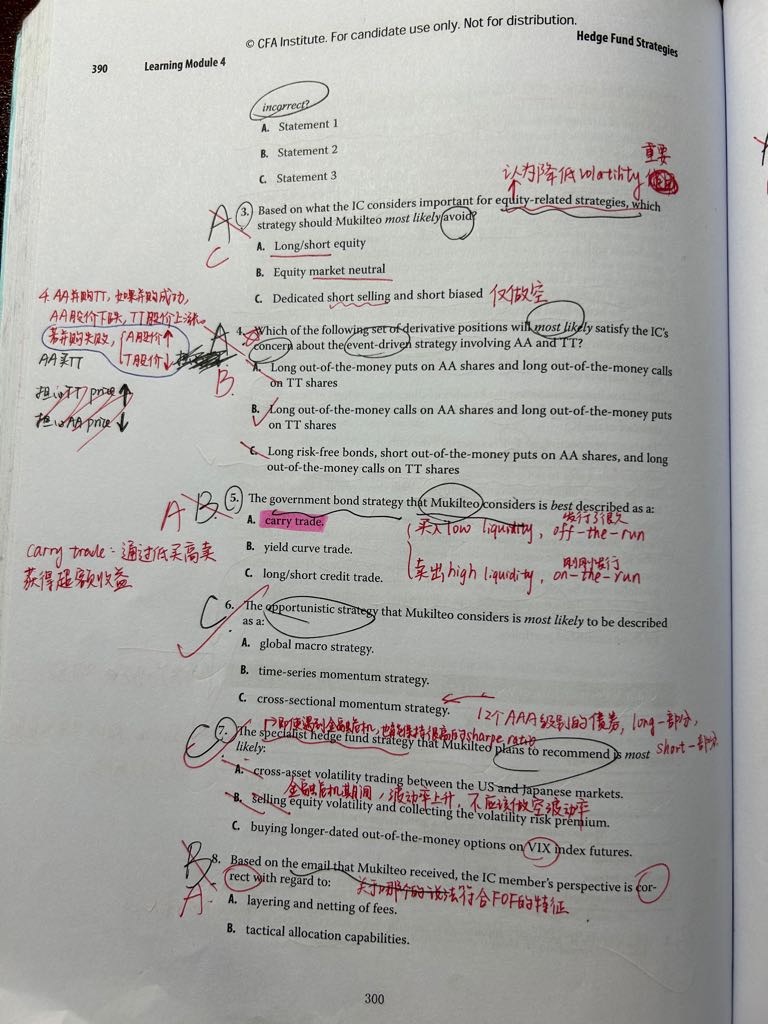 © CFA Institute. For candidate use only. Not for distribution.
390 Learning Module 4 Hedge Fund Strategies
incorrect?
A. Statement 1
B. Statement 2
C. Statement 3
重要
认为降低volatility
A
C
3. Based on what the IC considers important for equity-related strategies, which
strategy should Mukilteo most likely avoid?
A. Long/short equity
B. Equity market neutral
C. Dedicated short selling and short biased 仅做空
4. AA并购TT, 如果并购成功,
AA股价下跌, TT股价上涨。
若并购失败, A股价↑
T股价↓
AA买TT
担心TT price↑
担心AA price↓
A
B.
4. Which of the following set of derivative positions will most likely satisfy the IC's
concern about the event-driven strategy involving AA and TT?
A. Long out-of-the-money puts on AA shares and long out-of-the-money calls
on TT shares
B. Long out-of-the-money calls on AA shares and long out-of-the-money puts
on TT shares
C. Long risk-free bonds, short out-of-the-money puts on AA shares, and long
out-of-the-money calls on TT shares
A B.
5. The government bond strategy that Mukilteo considers is best described as a:
A. carry trade.
B. yield curve trade.
C. long/short credit trade.
发行了很久
买入low liquidity, off-the-run
刚刚发行
卖出high liquidity, on-the-run
carry trade:通过低买高卖
获得超额收益
C
6. The opportunistic strategy that Mukilteo considers is most likely to be described
as a:
A. global macro strategy.
B. time-series momentum strategy.
C. cross-sectional momentum strategy.
12个AAA级别的债券, long一部分,
short一部分
即使遇到金融危机, 也能保持很高的sharpe ratio
C
7. The specialist hedge fund strategy that Mukilteo plans to recommend is most
likely:
A. cross-asset volatility trading between the US and Japanese markets.
金融危机期间, 波动率上升, 不应该做空波动率
B. selling equity volatility and collecting the volatility risk premium.
C. buying longer-dated out-of-the-money options on VIX index futures.
B
A.
8. Based on the email that Mukilteo received, the IC member's perspective is cor-
rect with regard to:
关于哪个的说法符合FOF的特征
A. layering and netting of fees.
B. tactical allocation capabilities.
300